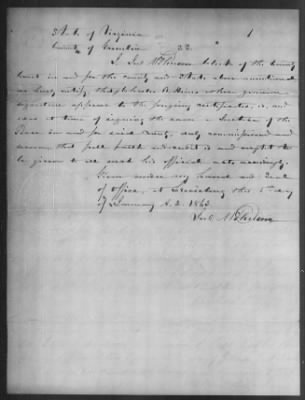 State of Virginia
County of
I, Jno clerk of the County
Court in and for the County and State above mentioned
do hereby certify that whose genuine
signature appears to the foregoing certificate, is, and
was at time of signing the same a Justice of the
Peace in and for said County, duly commissioned and
sworn that full faith and credit is and ought to
be given to all such his official acts, accordingly.
Given under my hand and Seal
of office, at this day
of January A.D. 1863
Jno